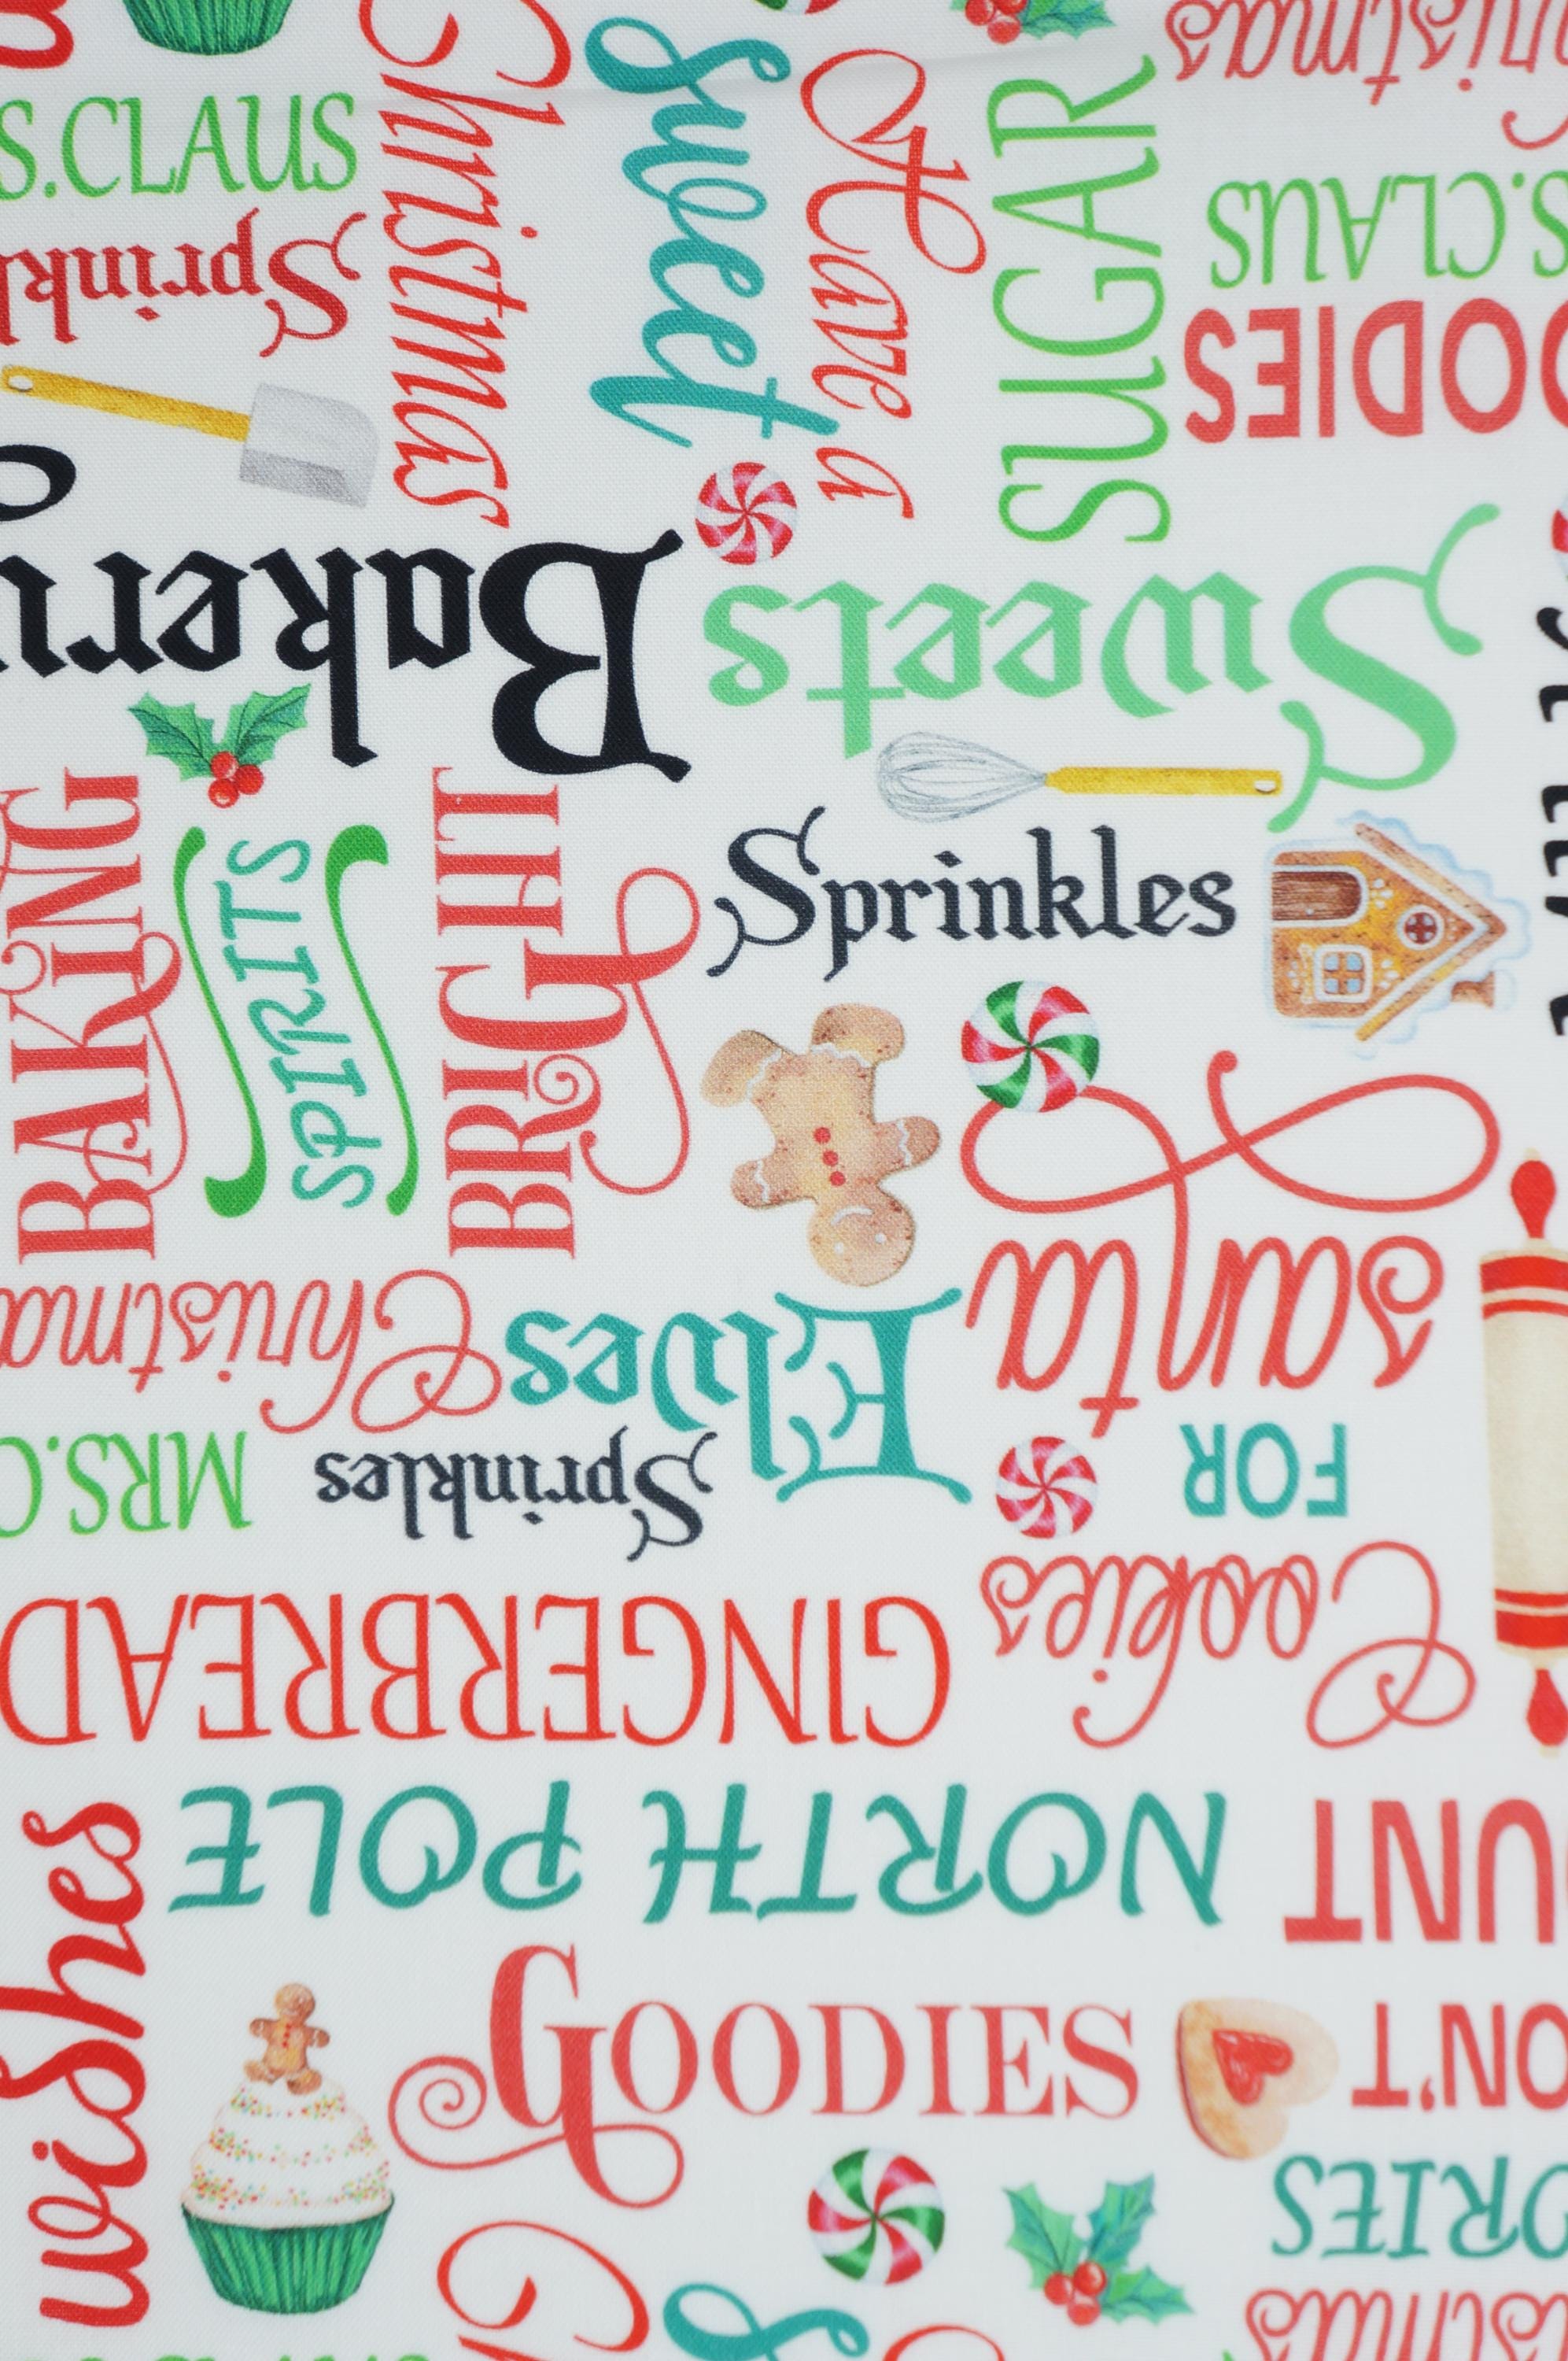 Christmas
S.CLAUS
Christmas
Sweet
Have a
SUGAR
S.CLAUS
Sprinkl
OODIES
Bakery
Sweets
BAKING
SPIRITS
BRIGHT
Sprinkles
santa
Christma
Elves
FOR
MRS.C
Sprinkles
Cookies
GINGERBREAD
NORTH POLE
UNT
wishes
GOODIES
ON'T
ORIES
istmas